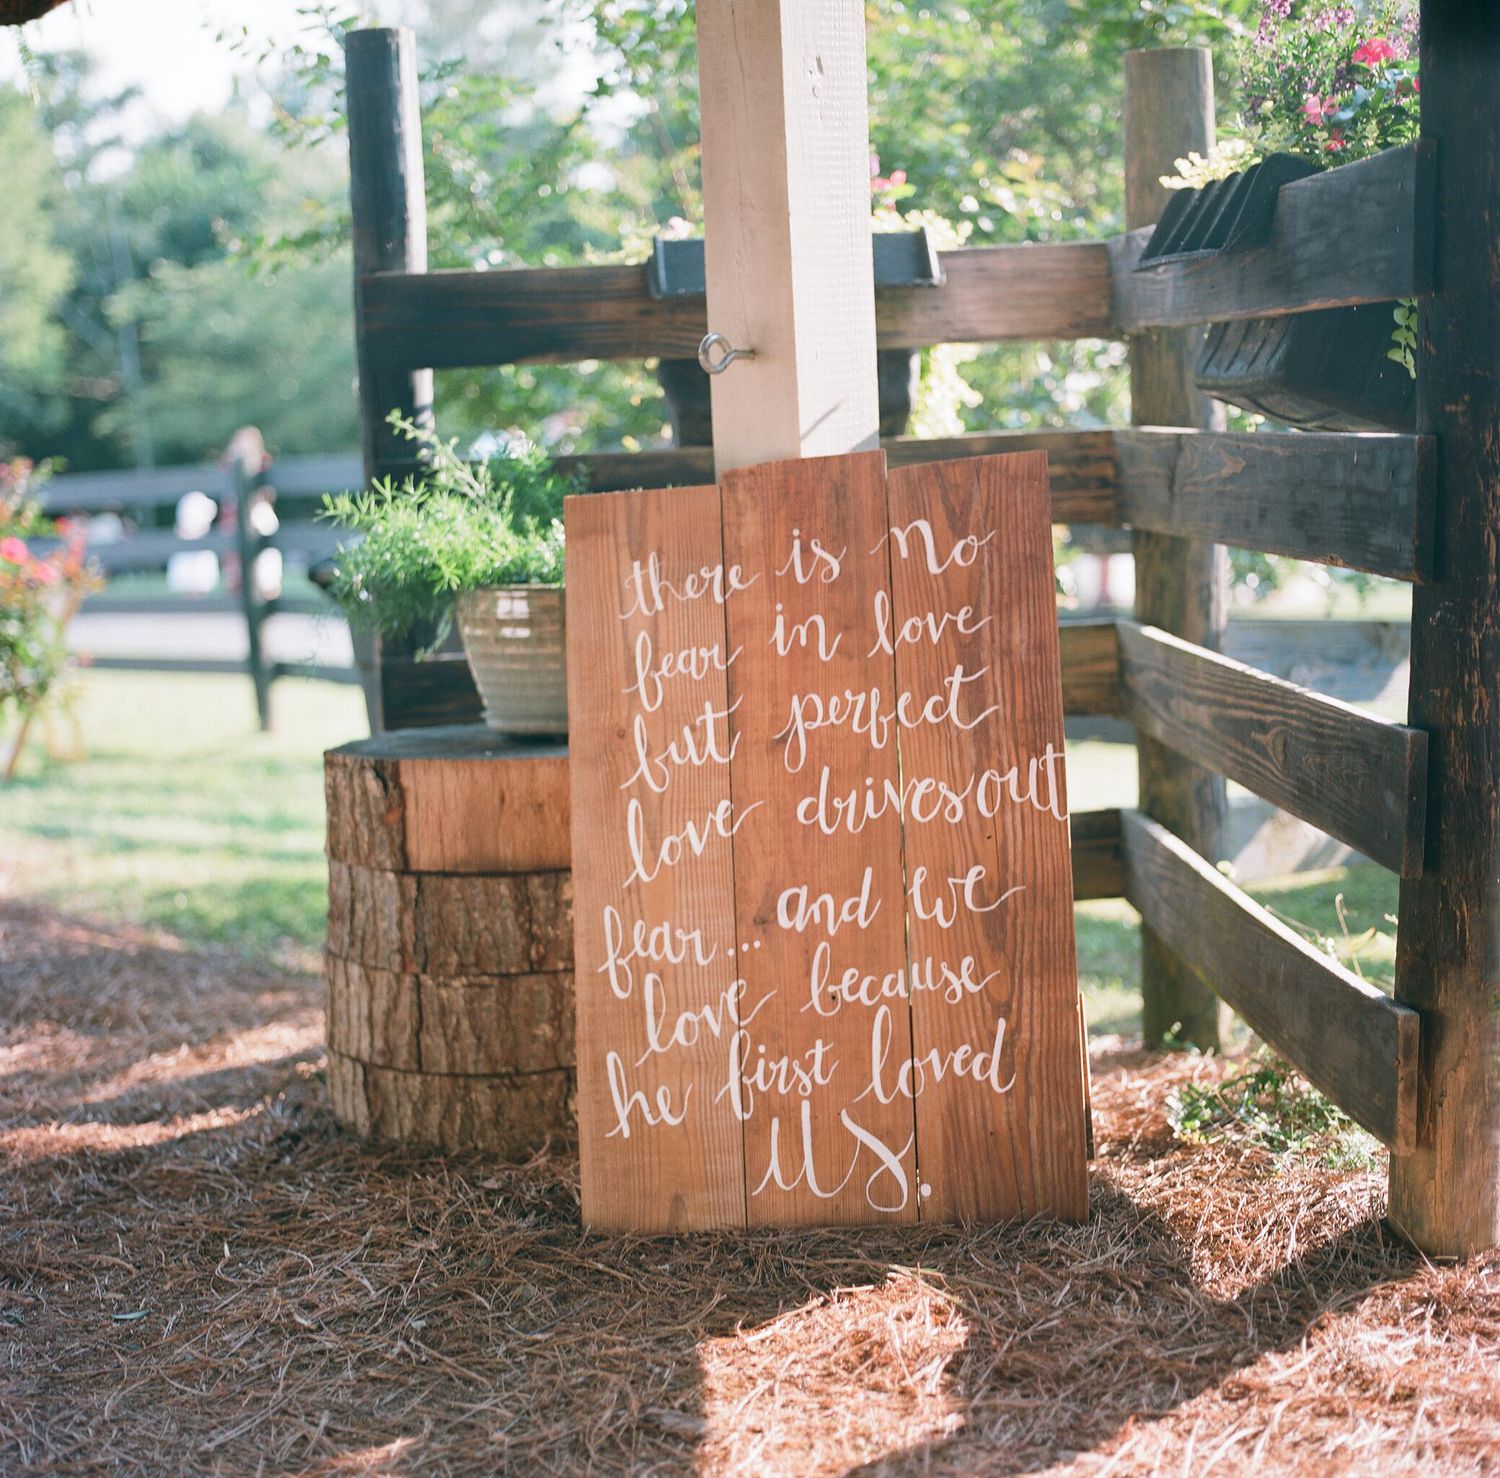 there is no
fear in love
but perfect
love drives out
fear... and we
love because
he first loved
us.